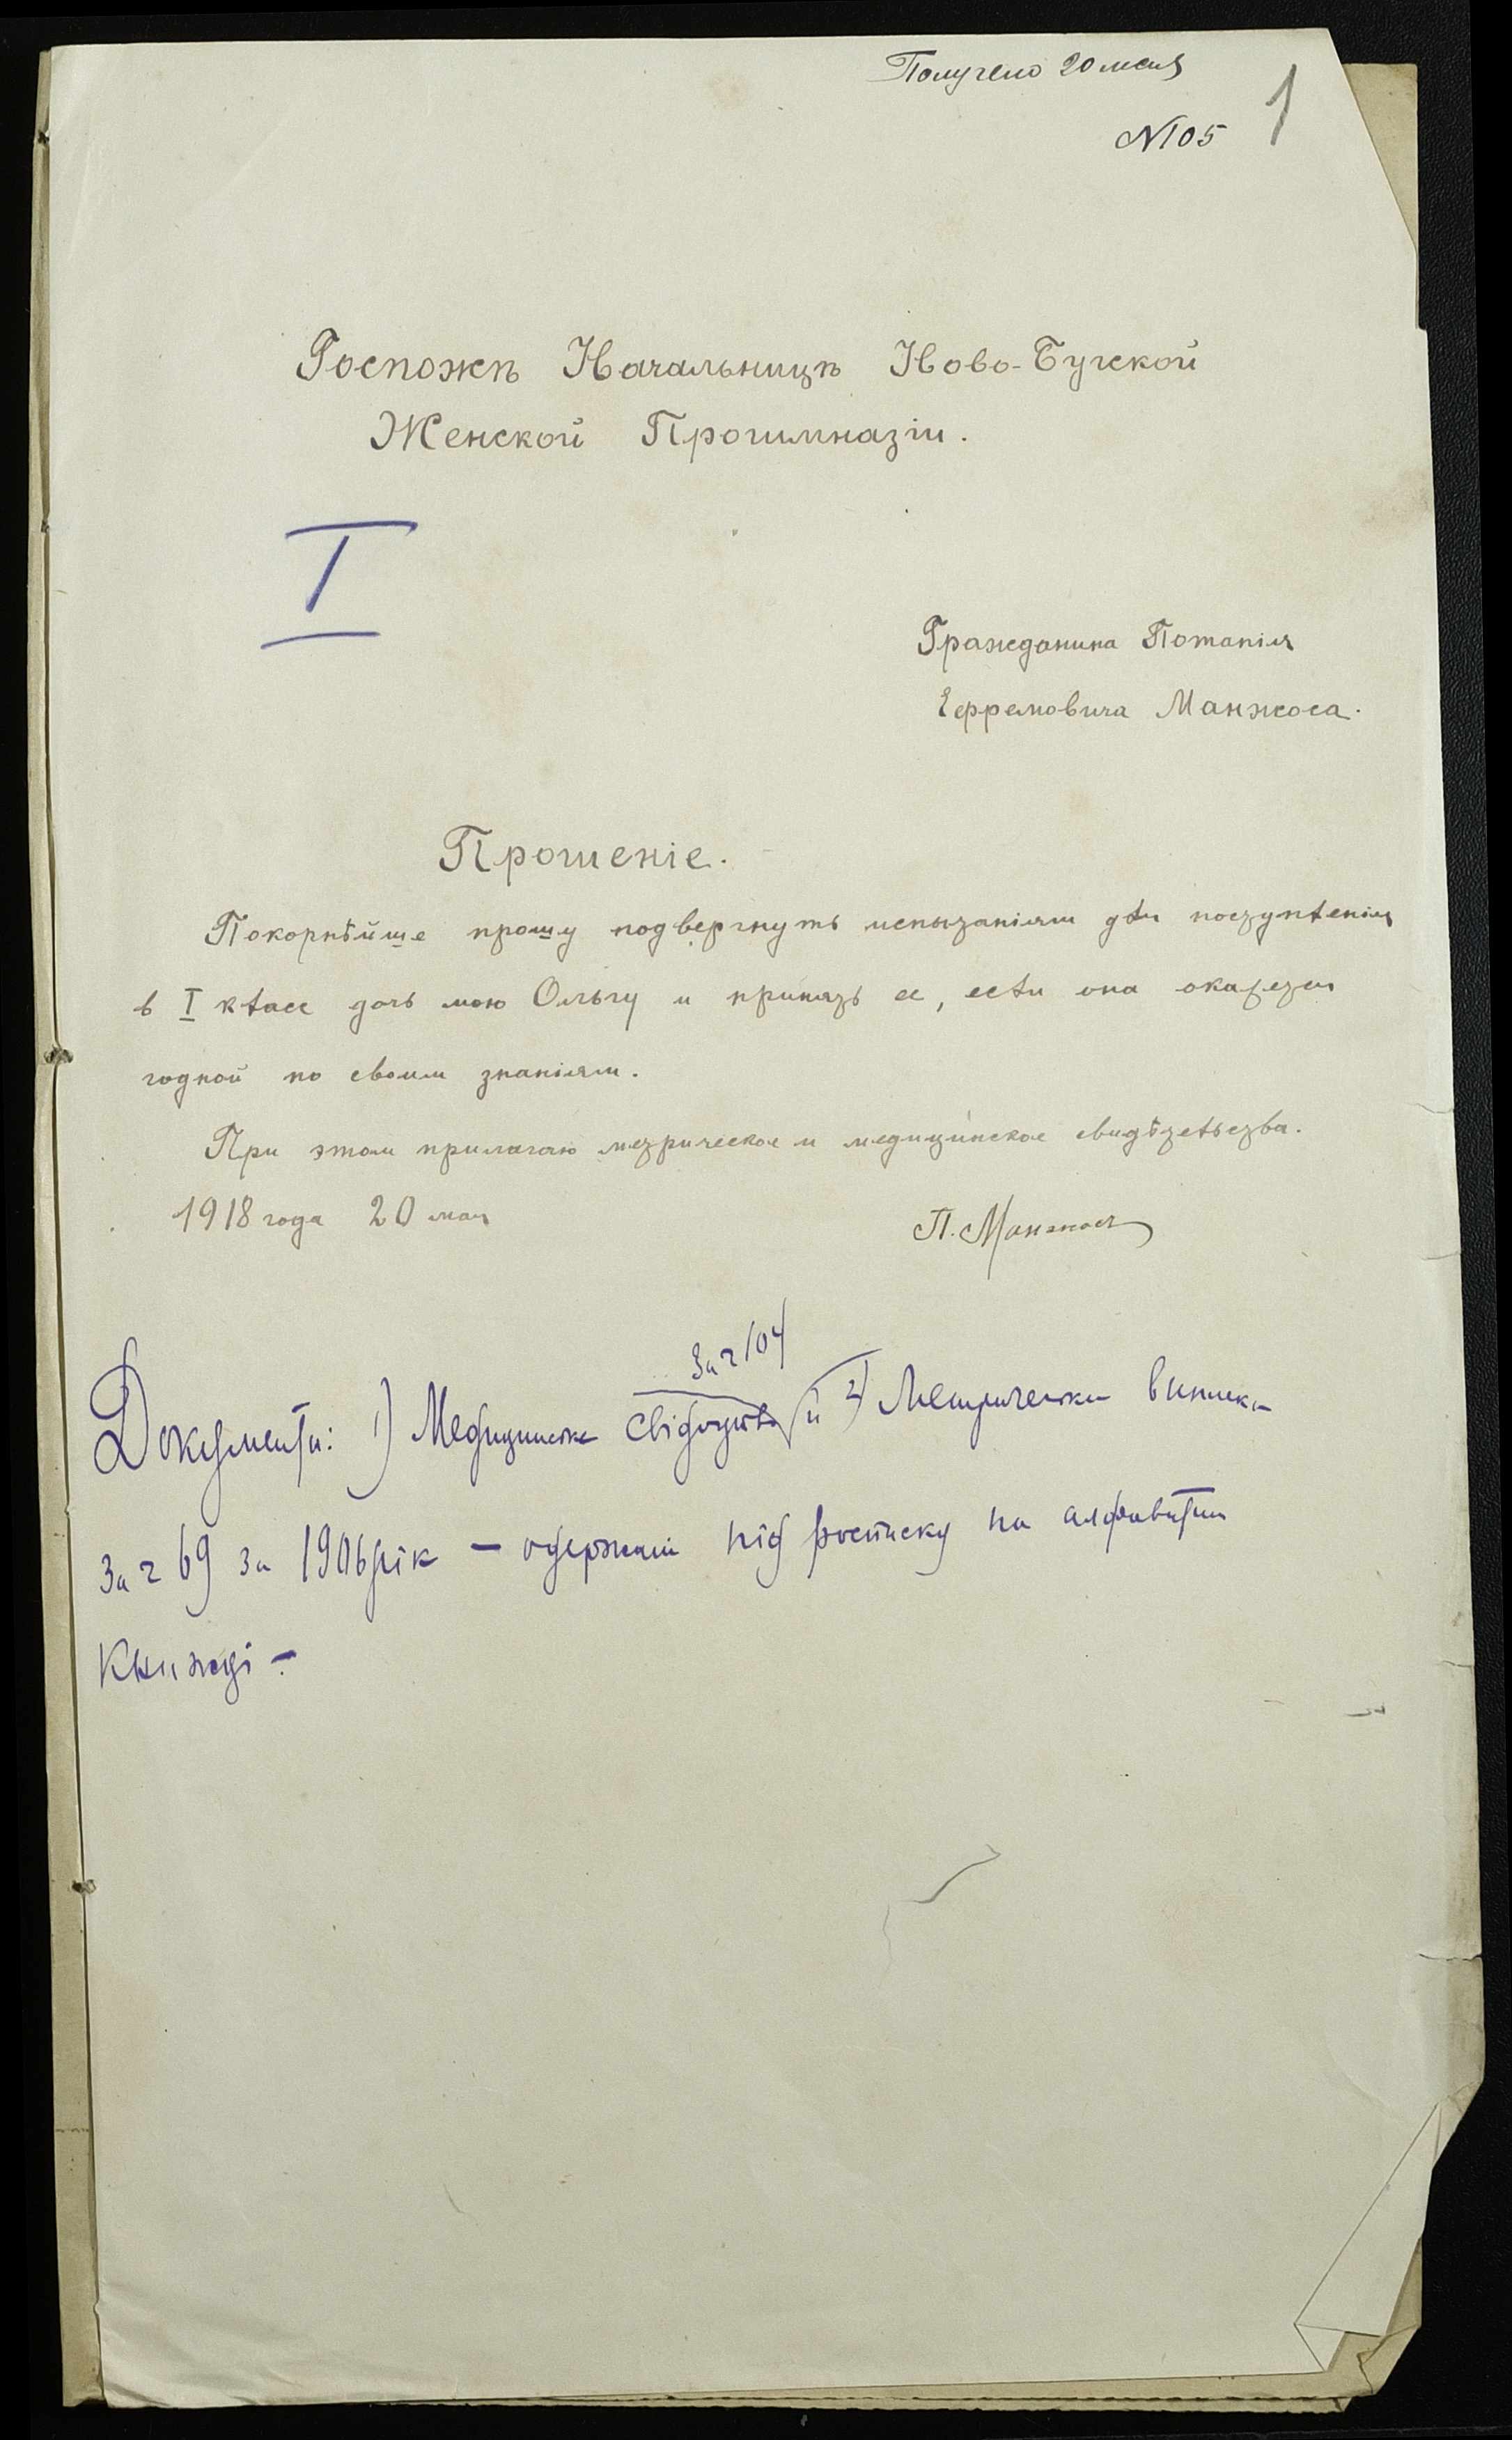 Получено 20 мая
1
N105
Госпожѣ Начальницѣ Ново-Бугской
Женской Прогимназіи.
I
Гражданина Потапія
Ефремовича Манжоса.
Прошеніе.
Покорнѣйше прошу подвергнуть испытаніям для поступленія
в I класс дочь мою Ольгу и принять ее, если она окажется
годной по своим знаніям.
При этом прилагаю метрическое и медицинское свидѣтельства.
1918 года 20 мая
П. Манжос
за ч 104
Документи: 1) Медицинське свідоцтво й 2) Метрическа виписка
За ч 69 за 1906 рік – одержані під росписку на алфавитни
книжці –